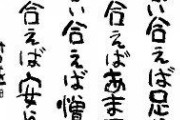 い合えば足
合えばあま
い合えば憎
合えば安